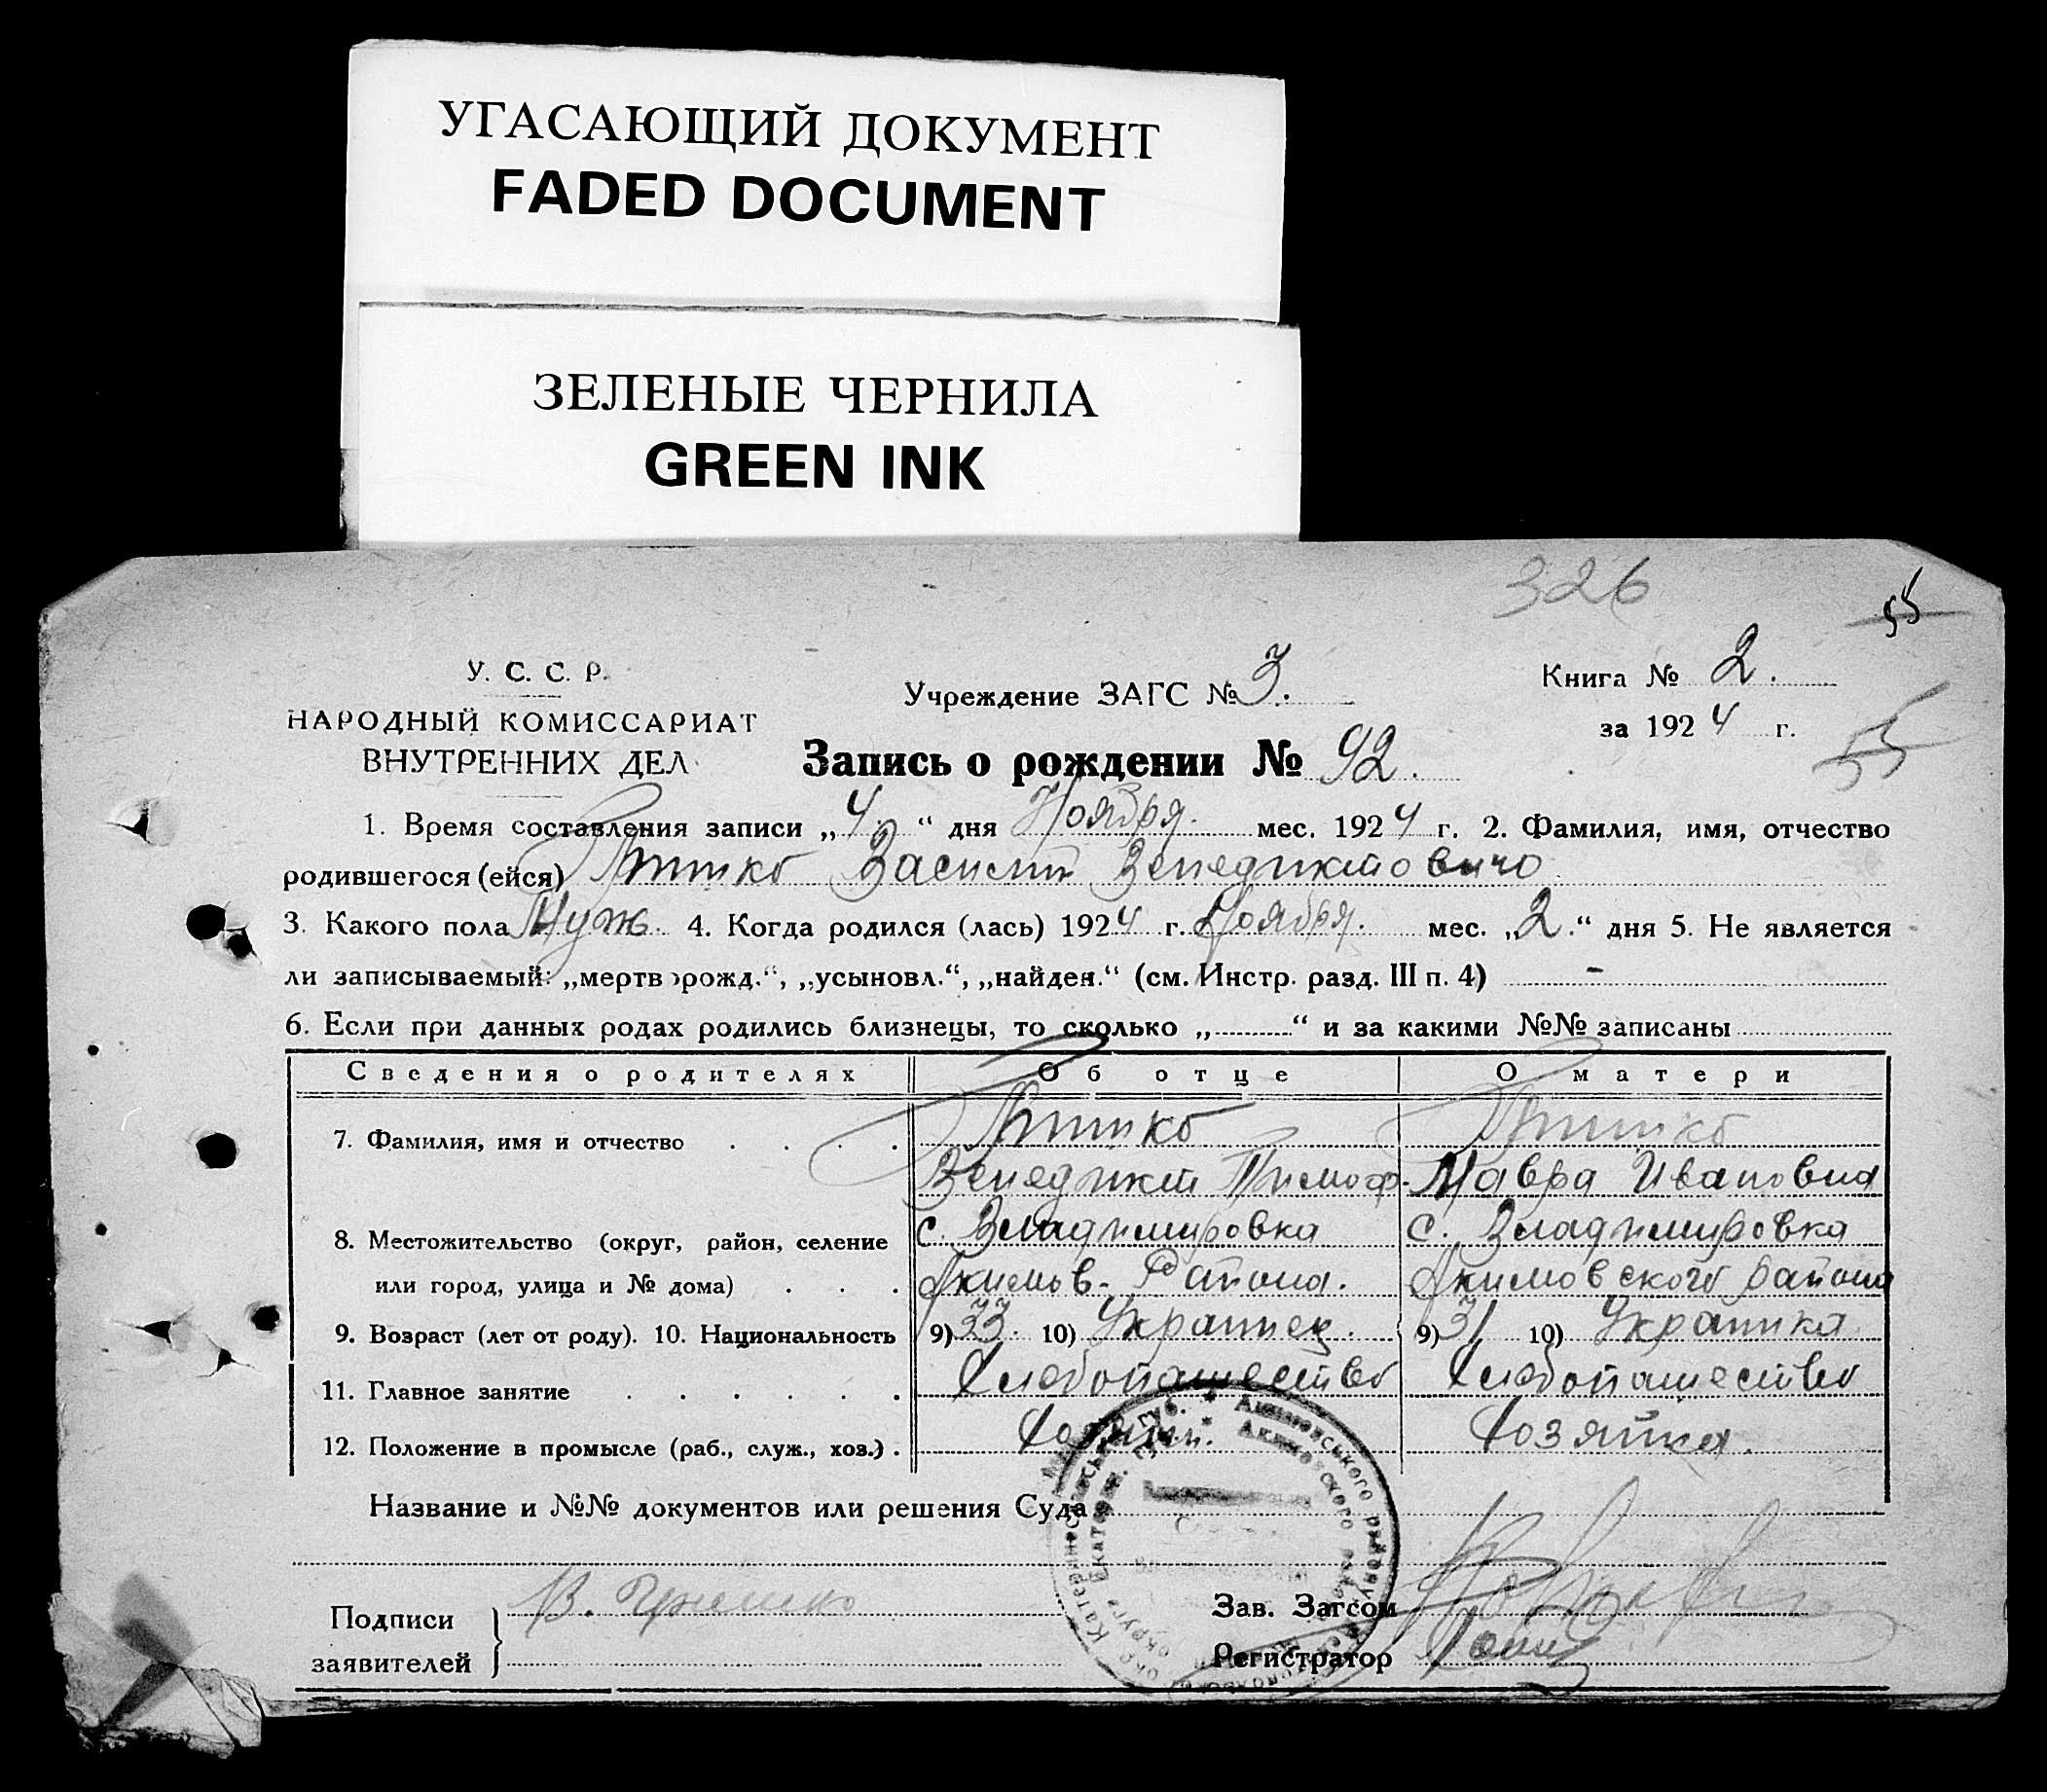 УГАСАЮЩИЙ ДОКУМЕНТ
FADED DOCUMENT
ЗЕЛЕНЫЕ ЧЕРНИЛА
GREEN INK
326
55
У. С. С. Р.
Учреждение ЗАГС № 3.
Книга № 2.
НАРОДНЫЙ КОМИССАРИАТ
за 1924 г.
55
ВНУТРЕННИХ ДЕЛ
Запись о рождении № 92.
1. Время составления записи „4.“ дня Ноября. мес. 1924 г. 2. Фамилия, имя, отчество
родившегося (ейся) Василий Венедиктович
3. Какого пола Муж. 4. Когда родился (лась) 1924 г. Ноября. мес. „2.“ дня 5. Не является
ли записываемый: „мертворожд.“, „усыновл.“, „найден.“ (см. Инстр. разд. III п. 4) -
6. Если при данных родах родились близнецы, то сколько „ “ и за какими №№ записаны
Сведения о родителях Об отце О матери
7. Фамилия, имя и отчество
Венедикт Тимоф. Мавра Ивановна
8. Местожительство (округ, район, селение с. Владимировка с. Владимировка
или город, улица и № дома) Акимов. Района. Акимовского района
9. Возраст (лет от роду). 10. Национальность 9) 33. 10) Украинец. 9) 31 10) Украинка
11. Главное занятие Хлебопашество Хлебопашество
12. Положение в промысле (раб., служ., хоз.) Хозяин. Хозяйка.
Название и №№ документов или решения Суда
Подписи В. Гришко Зав. Загсом
заявителей Регистратор